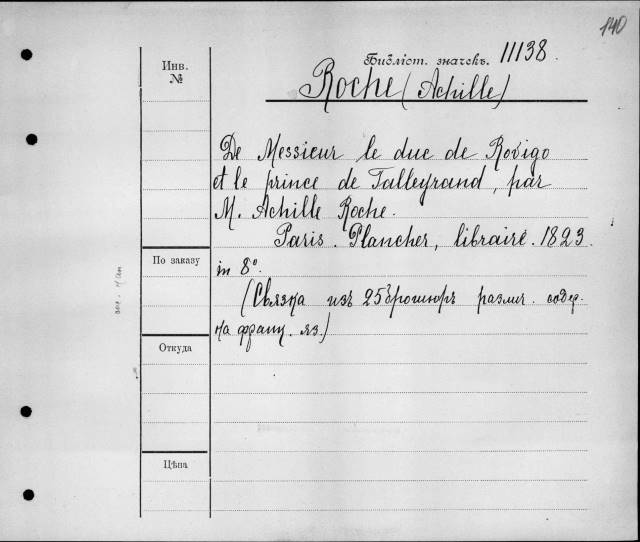 140
Инв.
№
Библіот. значекъ. 11138.
Roche (Achille)
De Messieur le duc de Rovigo
et le prince de Talleyrand, par
M. Achille Roche.
Paris. Plancher, libraire. 1823.
in 8°.
По заказу
(Связка изъ 25 брошюръ различ. содер.
на франц. яз.)
Откуда
Цѣна